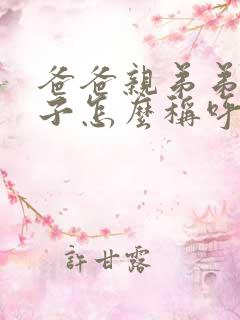 爸爸親弟弟
子怎麼稱呼
許甘露